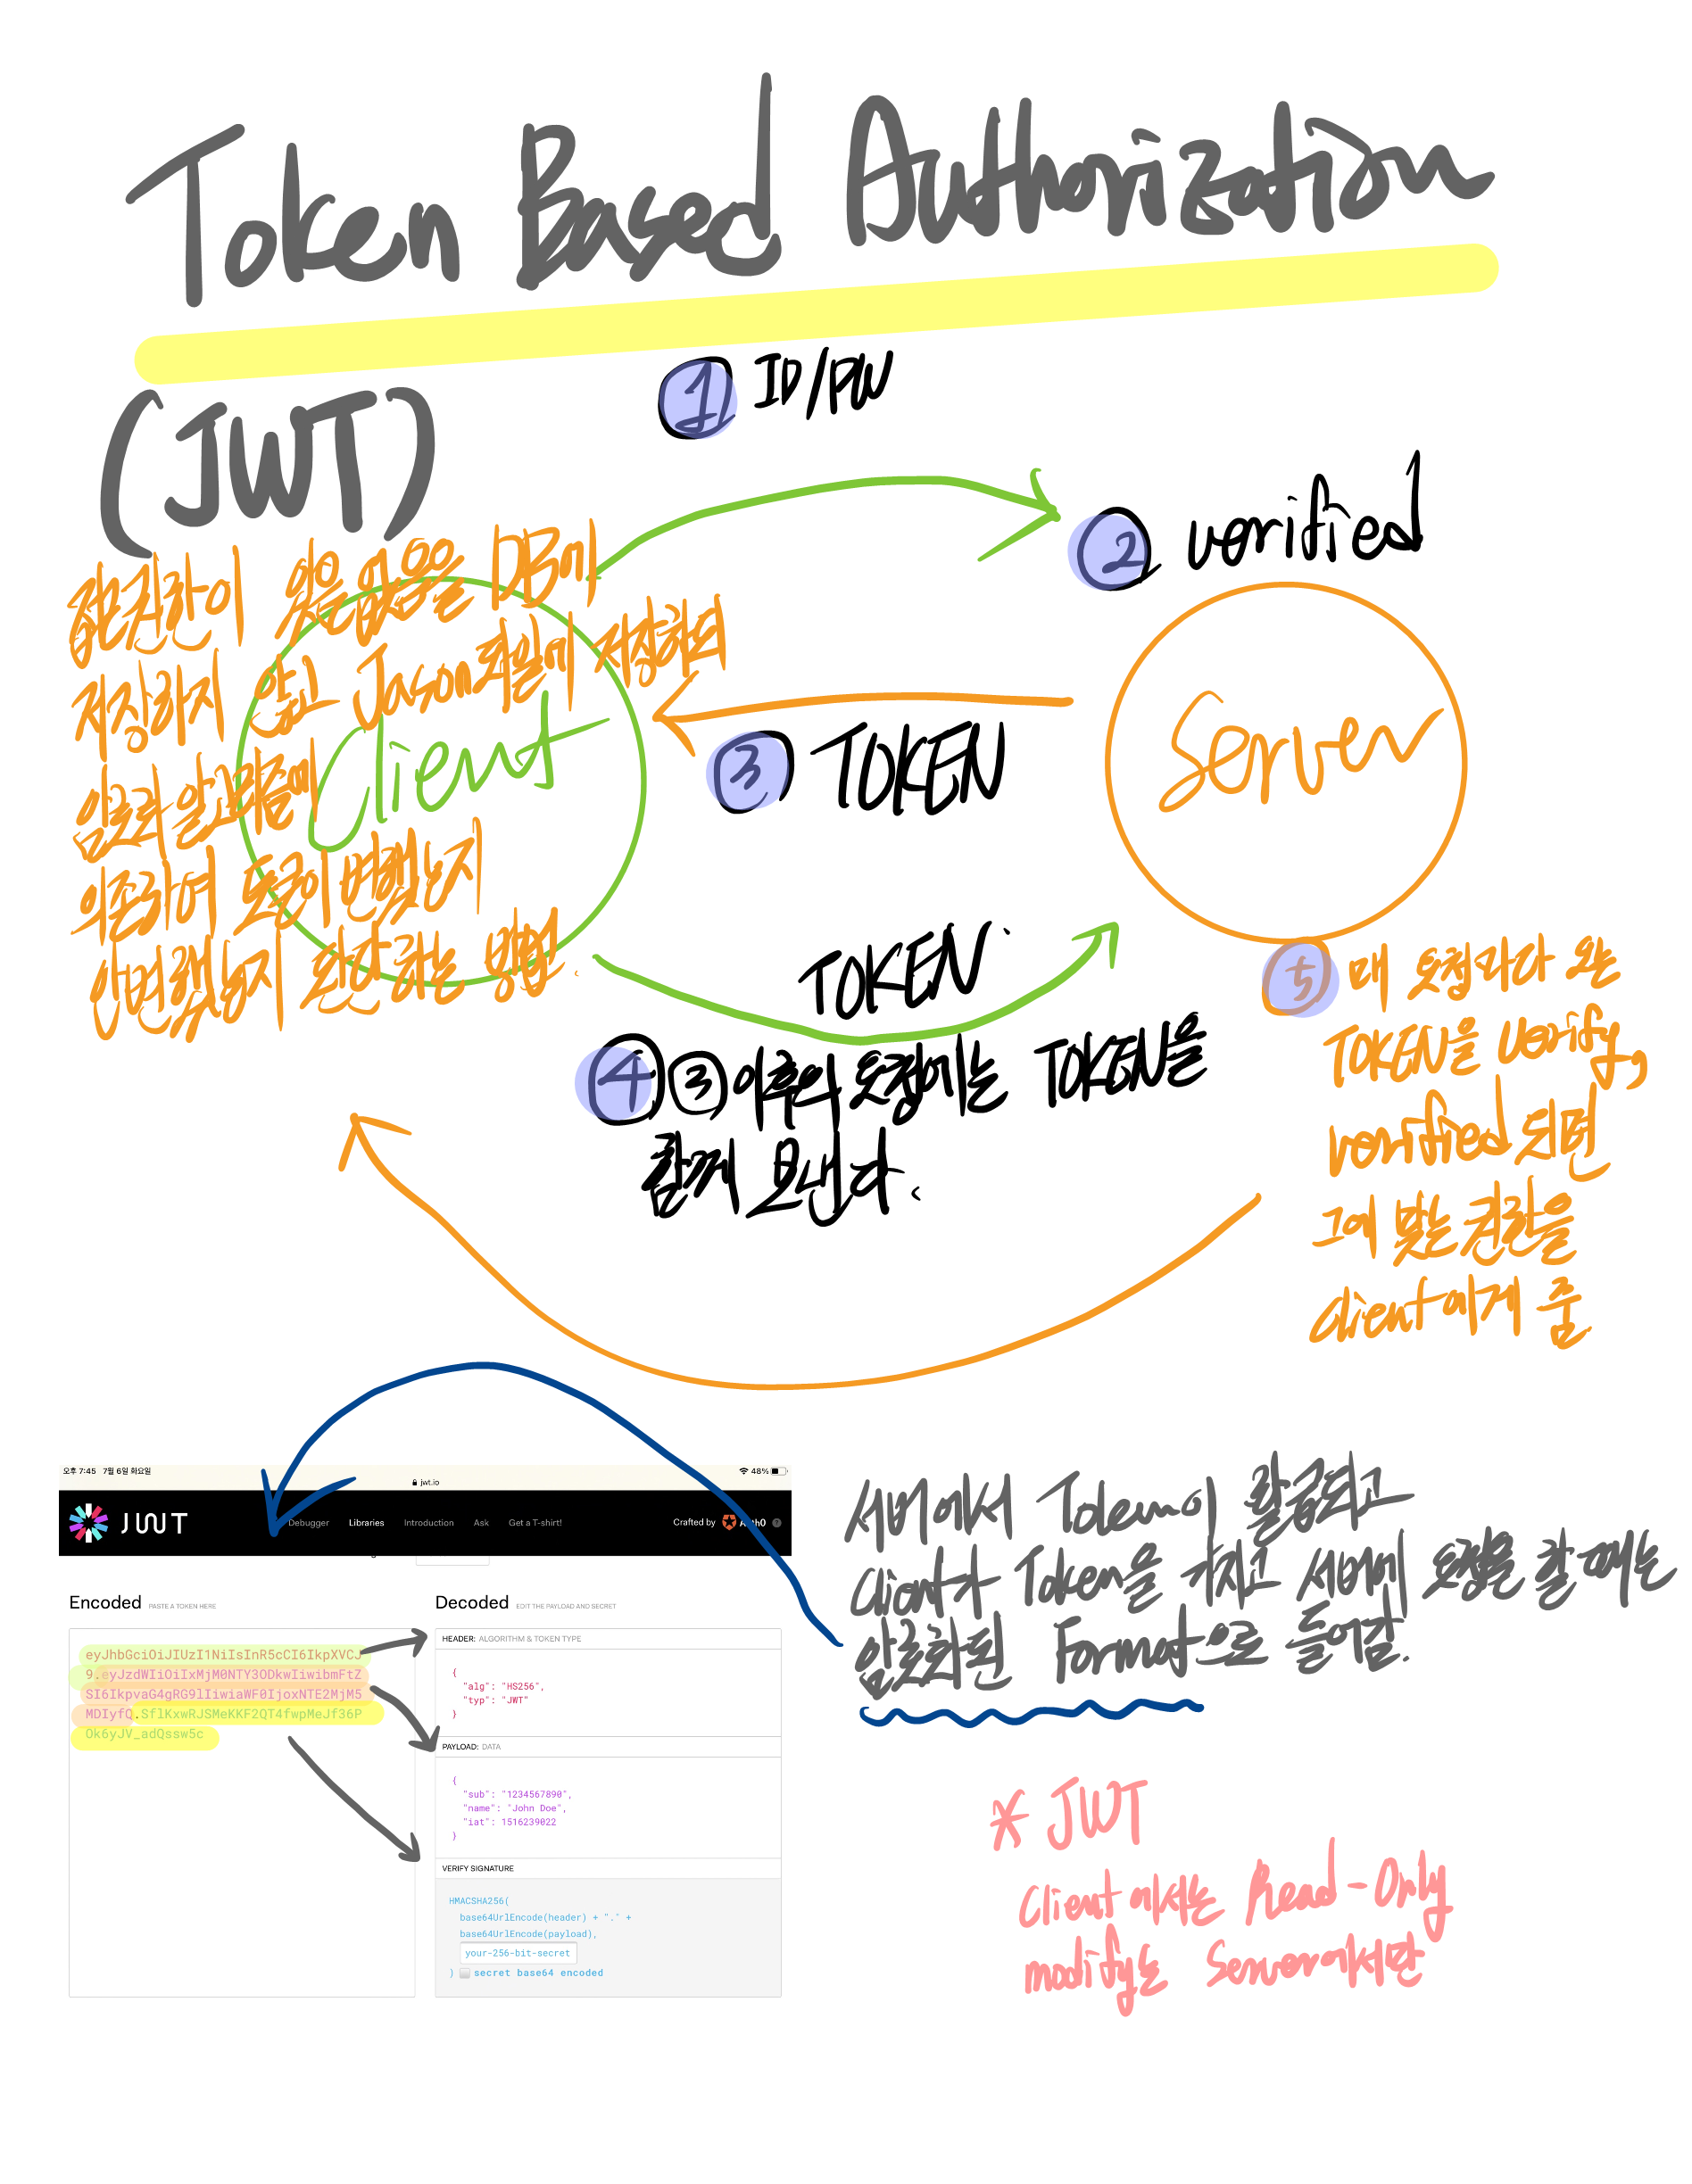 Token Based Authorization
(JWT)
① ID/PW
② verified
권한이 있음 없음을 DB에
저장하지 않고 Jason파일에 저장하되
암호화 알고리즘에
의존하여 토큰이 변했는지
안변했는지 판단하는 방법.
Client
Server
③ TOKEN
TOKEN
④ ③ 이후의 요청에는 TOKEN을
함께 보낸다.
⑤ 매 요청마다 오는
TOKEN을 verify,
verified 되면
그에 맞는 권한을
client에게 줌
오후 7:45 7월 6일 화요일
jwt.io
48%
JWT
Debugger Libraries Introduction Ask Get a T-shirt!
Crafted by Auth0
Encoded PASTE A TOKEN HERE
eyJhbGciOiJIUzI1NiIsInR5cCI6IkpXVCJ
9.eyJzdWIiOiIxMjM0NTY3ODkwIiwibmFtZ
SI6IkpvaG4gRG9lIiwiaWF0IjoxNTE2MjM5
MDIyfQ.SflKxwRJSMeKKF2QT4fwpMeJf36P
Ok6yJV_adQssw5c
Decoded EDIT THE PAYLOAD AND SECRET
HEADER: ALGORITHM & TOKEN TYPE
{
"alg": "HS256",
"typ": "JWT"
}
PAYLOAD: DATA
{
"sub": "1234567890",
"name": "John Doe",
"iat": 1516239022
}
VERIFY SIGNATURE
HMACSHA256(
base64UrlEncode(header) + "." +
base64UrlEncode(payload),
your-256-bit-secret
) secret base64 encoded
서버에서 Token이 발급되고
Client가 Token을 가지고 서버에 요청을 할 때는
암호화된 Format으로 들어감.
* JWT
Client에서는 Read-Only
modify는 Server에서만